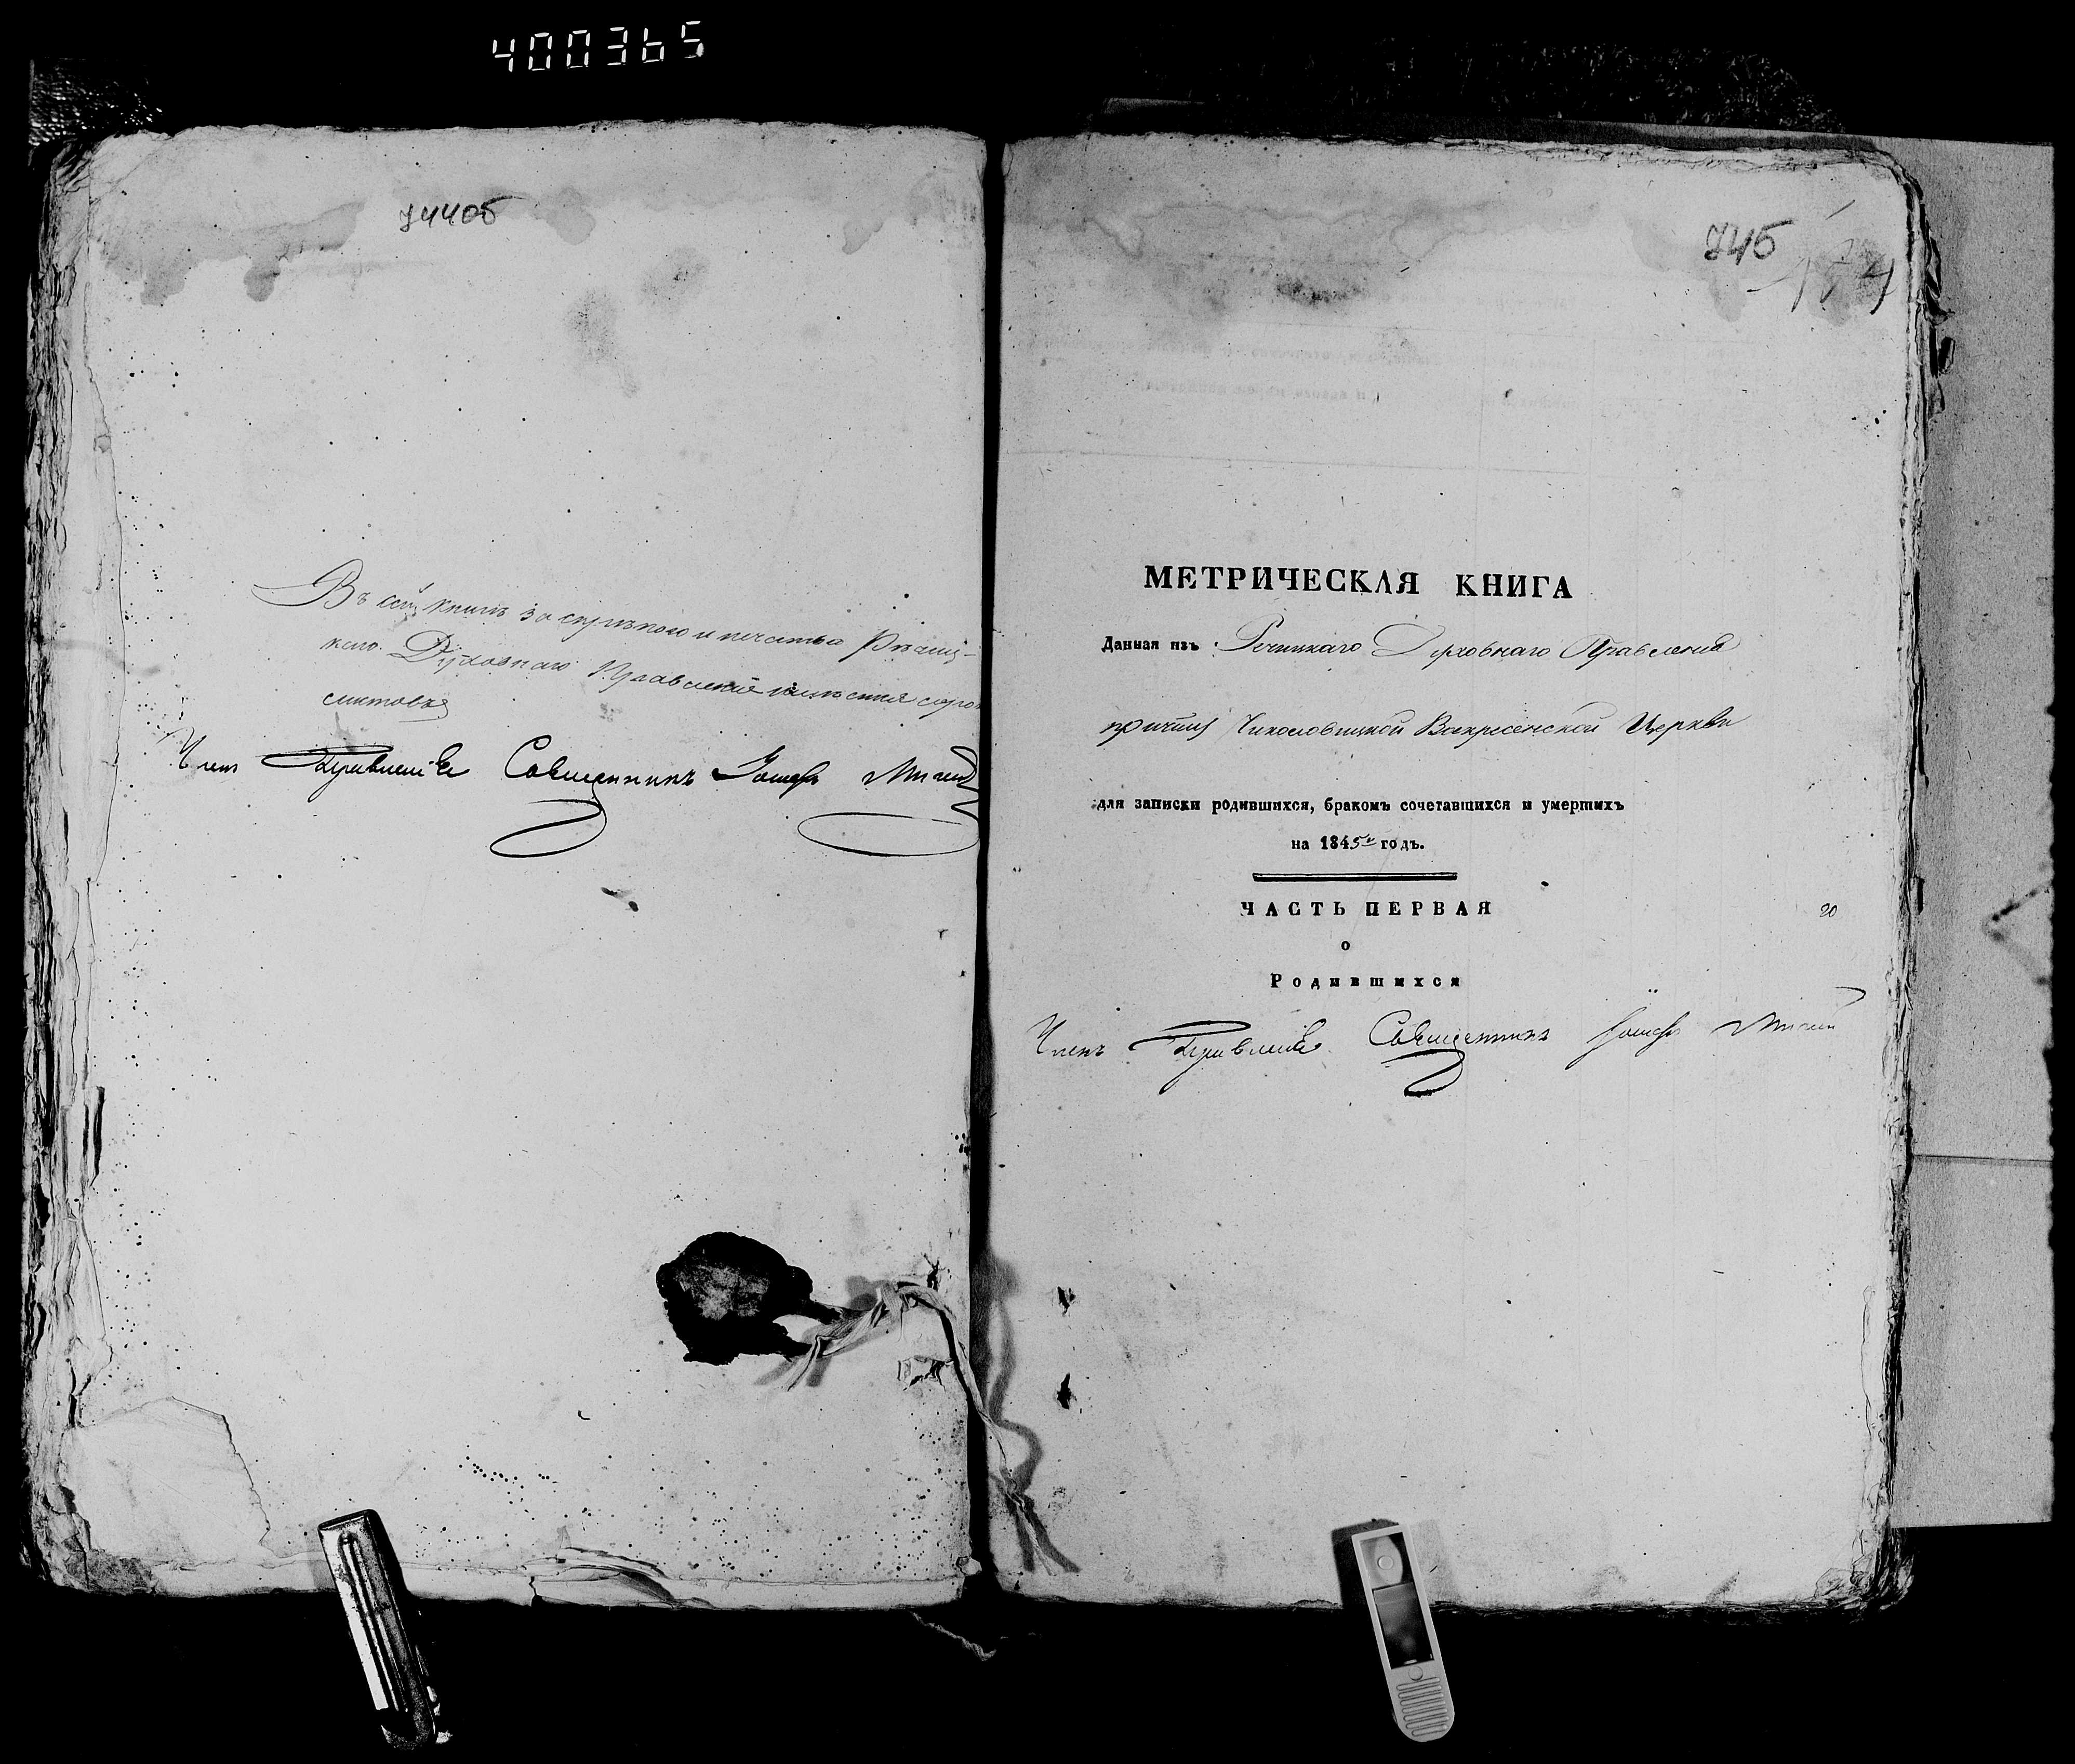 400365
744об
Въ сей книгѣ за скрѣпою и печатью Рѣчиц-
каго Духовнаго Правленія листовъ
Членъ Правленія Священникъ Іосифъ
745
МЕТРИЧЕСКАЯ КНИГА
Данная изъ Речицкаго Духовнаго Правленія
причту Чиколовицкой Воскресенской Церкви
для записки родившихся, бракомъ сочетавшихся и умершихъ
на 1845й годъ.
ЧАСТЬ ПЕРВАЯ
20
о
Родившихся
Членъ Правленія Священникъ Іосифъ